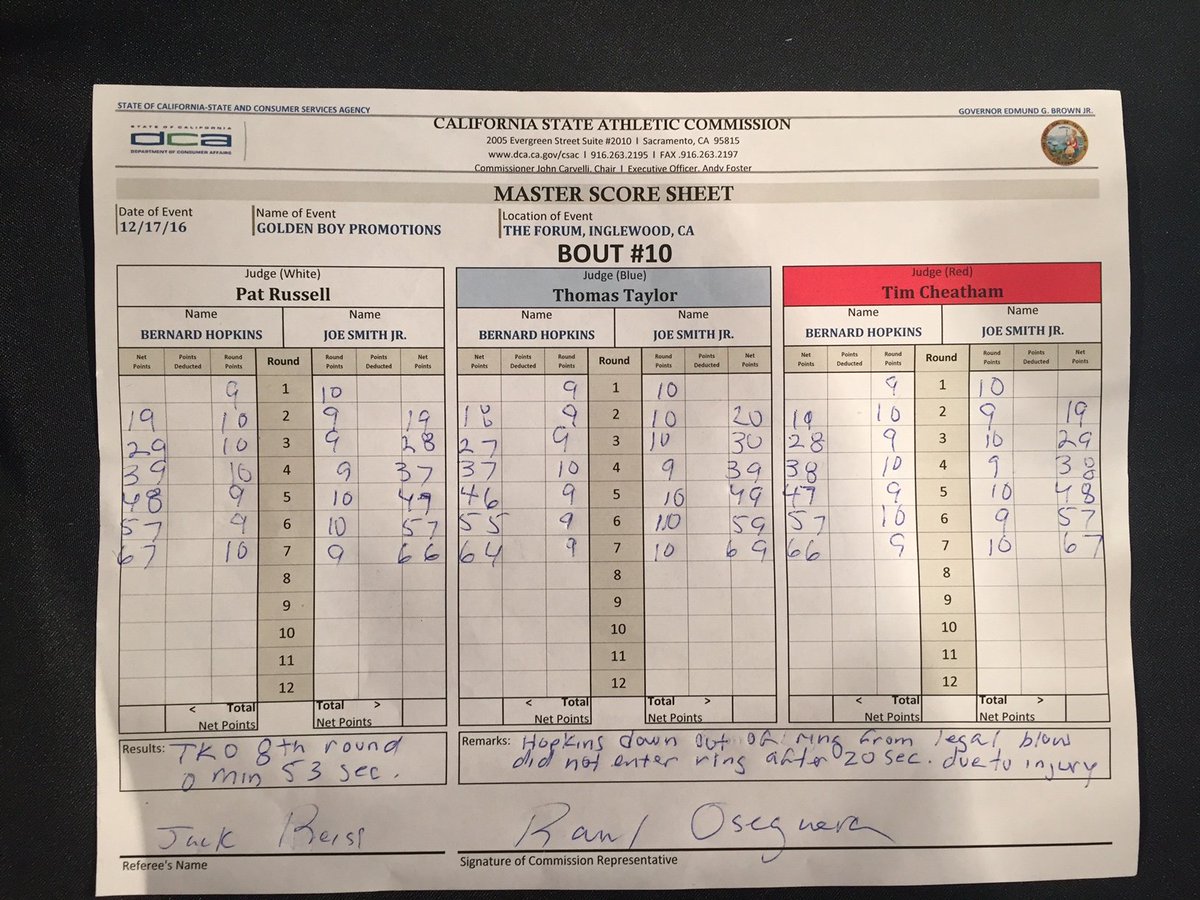 STATE OF CALIFORNIA-STATE AND CONSUMER SERVICES AGENCY GOVERNOR EDMUND G. BROWN JR.
STATE OF CALIFORNIA
dca
DEPARTMENT OF CONSUMER AFFAIRS
CALIFORNIA STATE ATHLETIC COMMISSION
2005 Evergreen Street Suite #2010 | Sacramento, CA 95815
www.dca.ca.gov/csac | 916.263.2195 | FAX .916.263.2197
Commissioner John Carvelli, Chair | Executive Officer, Andy Foster
MASTER SCORE SHEET
Date of Event Name of Event Location of Event
12/17/16 GOLDEN BOY PROMOTIONS THE FORUM, INGLEWOOD, CA
BOUT #10
Judge (White) Judge (Blue) Judge (Red)
Pat Russell Thomas Taylor Tim Cheatham
Name Name Name Name Name Name
BERNARD HOPKINS JOE SMITH JR. BERNARD HOPKINS JOE SMITH JR. BERNARD HOPKINS JOE SMITH JR.
Net Points Points Deducted Round Points Round Round Points Points Deducted Net Points Net Points Points Deducted Round Points Round Round Points Points Deducted Net Points Net Points Points Deducted Round Points Round Round Points Points Deducted Net Points
9 1 10 9 1 10 9 1 10
19 10 2 9 19 18 9 2 10 20 19 10 2 9 19
29 10 3 9 28 27 9 3 10 30 28 9 3 10 29
39 10 4 9 37 37 10 4 9 39 38 10 4 9 38
48 9 5 10 47 46 9 5 10 49 47 9 5 10 48
57 9 6 10 57 55 9 6 10 59 57 10 6 9 57
67 10 7 9 66 64 9 7 10 69 66 9 7 10 67
8 8 8
9 9 9
10 10 10
11 11 11
12 12 12
< Total Total > < Total Total > < Total Total >
Net Points Net Points Net Points Net Points Net Points Net Points
Results: TKO 8th round
0 min 53 sec.
Remarks: Hopkins down out of ring from legal blow
did not enter ring after 20 sec. due to injury
Jack Reiss
Raul Oseguera
Referee's Name Signature of Commission Representative